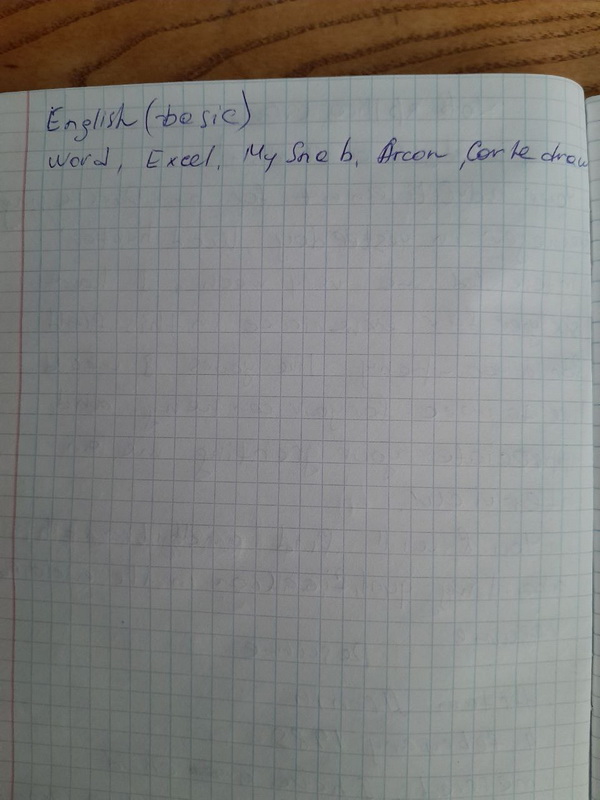 English (basic)
Word, Excel, My Sneb, Arcon, Corle draw